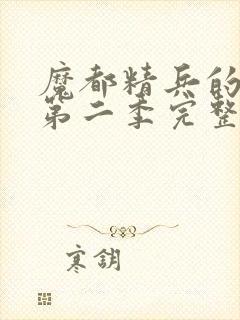 魔都精兵的
第二季完整
寒钥